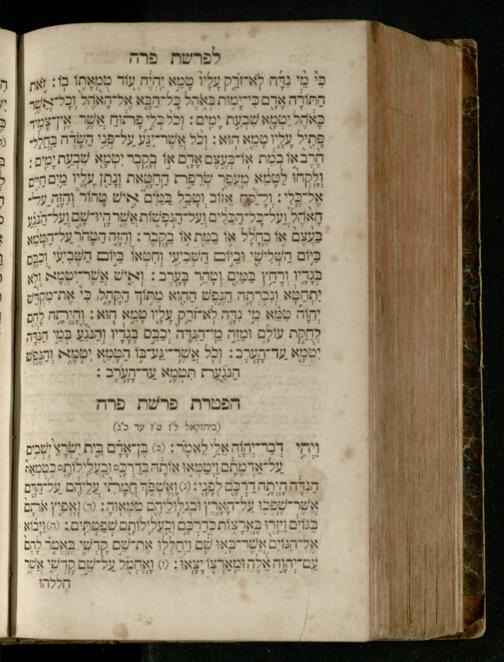 לפרשת פרה
כִּי מֵי נִדָּה לֹא־זֹרַק עָלָיו טָמֵא יִהְיֶה עוֹד טֻמְאָתוֹ בוֹ׃ זֹאת
הַתּוֹרָה אָדָם כִּי־יָמוּת בְּאֹהֶל כָּל־הַבָּא אֶל־הָאֹהֶל וְכָל־אֲשֶׁר
בָּאֹהֶל יִטְמָא שִׁבְעַת יָמִים׃ וְכֹל כְּלִי פָתוּחַ אֲשֶׁר אֵין־צָמִיד
פָּתִיל עָלָיו טָמֵא הוּא׃ וְכֹל אֲשֶׁר־יִגַּע עַל־פְּנֵי הַשָּׂדֶה בַּחֲלַל־
חֶרֶב אוֹ בְמֵת אוֹ־בְעֶצֶם אָדָם אוֹ בְקָבֶר יִטְמָא שִׁבְעַת יָמִים׃
וְלָקְחוּ לַטָּמֵא מֵעֲפַר שְׂרֵפַת הַחַטָּאת וְנָתַן עָלָיו מַיִם חַיִּים
אֶל־כֶּלִי׃ וְלָקַח אֵזוֹב וְטָבַל בַּמַּיִם אִישׁ טָהוֹר וְהִזָּה עַל־
הָאֹהֶל וְעַל־כָּל־הַכֵּלִים וְעַל־הַנְּפָשׁוֹת אֲשֶׁר הָיוּ־שָׁם וְעַל־הַנֹּגֵעַ
בַּעֶצֶם אוֹ בֶחָלָל אוֹ בַמֵּת אוֹ בַקָּבֶר׃ וְהִזָּה הַטָּהֹר עַל־הַטָּמֵא
בַּיּוֹם הַשְּׁלִישִׁי וּבַיּוֹם הַשְּׁבִיעִי וְחִטְּאוֹ בַּיּוֹם הַשְּׁבִיעִי וְכִבֶּס
בְּגָדָיו וְרָחַץ בַּמַּיִם וְטָהֵר בָּעָרֶב׃ וְאִישׁ אֲשֶׁר־יִטְמָא וְלֹא
יִתְחַטָּא וְנִכְרְתָה הַנֶּפֶשׁ הַהִוא מִתּוֹךְ הַקָּהָל כִּי אֶת־מִקְדַּשׁ
יְהוָֹה טִמֵּא מֵי נִדָּה לֹא־זֹרַק עָלָיו טָמֵא הוּא׃ וְהָיְתָה לָהֶם
לְחֻקַּת עוֹלָם וּמַזֵּה מֵי־הַנִּדָּה יְכַבֵּס בְּגָדָיו וְהַנֹּגֵעַ בְּמֵי הַנִּדָּה
יִטְמָא עַד־הָעָרֶב׃ וְכֹל אֲשֶׁר־יִגַּע־בּוֹ הַטָּמֵא יִטְמָא וְהַנֶּפֶשׁ
הַנֹּגַעַת תִּטְמָא עַד־הָעָרֶב׃
הפטרת פרשת פרה
(ביחזקאל ל״ו ט״ז עד
וַיְהִי דְבַר־יְהוָֹה אֵלַי לֵאמֹר׃ (ב) בֶּן־אָדָם בֵּית יִשְׂרָאֵל יֹשְׁבִים
עַל־אַדְמָתָם וַיְטַמְּאוּ אוֹתָהּ בְּדַרְכָּם וּבַעֲלִילוֹתָם כְּטֻמְאַת
הַנִּדָּה הָיְתָה דַרְכָּם לְפָנָי׃ (ג) וָאֶשְׁפֹּךְ חֲמָתִי עֲלֵיהֶם עַל־הַדָּם
אֲשֶׁר־שָׁפְכוּ עַל־הָאָרֶץ וּבְגִלּוּלֵיהֶם טִמְּאוּהָ׃ (ד) וָאָפִיץ אֹתָם
בַּגּוֹיִם וַיִּזָּרוּ בָּאֲרָצוֹת כְּדַרְכָּם וְכַעֲלִילוֹתָם שְׁפַטְתִּים׃ (ה) וַיָּבוֹא
אֶל־הַגּוֹיִם אֲשֶׁר־בָּאוּ שָׁם וַיְחַלְּלוּ אֶת־שֵׁם קָדְשִׁי בֶּאֱמֹר לָהֶם
עַם־יְהוָֹה אֵלֶּה וּמֵאַרְצוֹ יָצָאוּ׃ (ו) וָאֶחְמֹל עַל־שֵׁם קָדְשִׁי אֲשֶׁר
חללהו